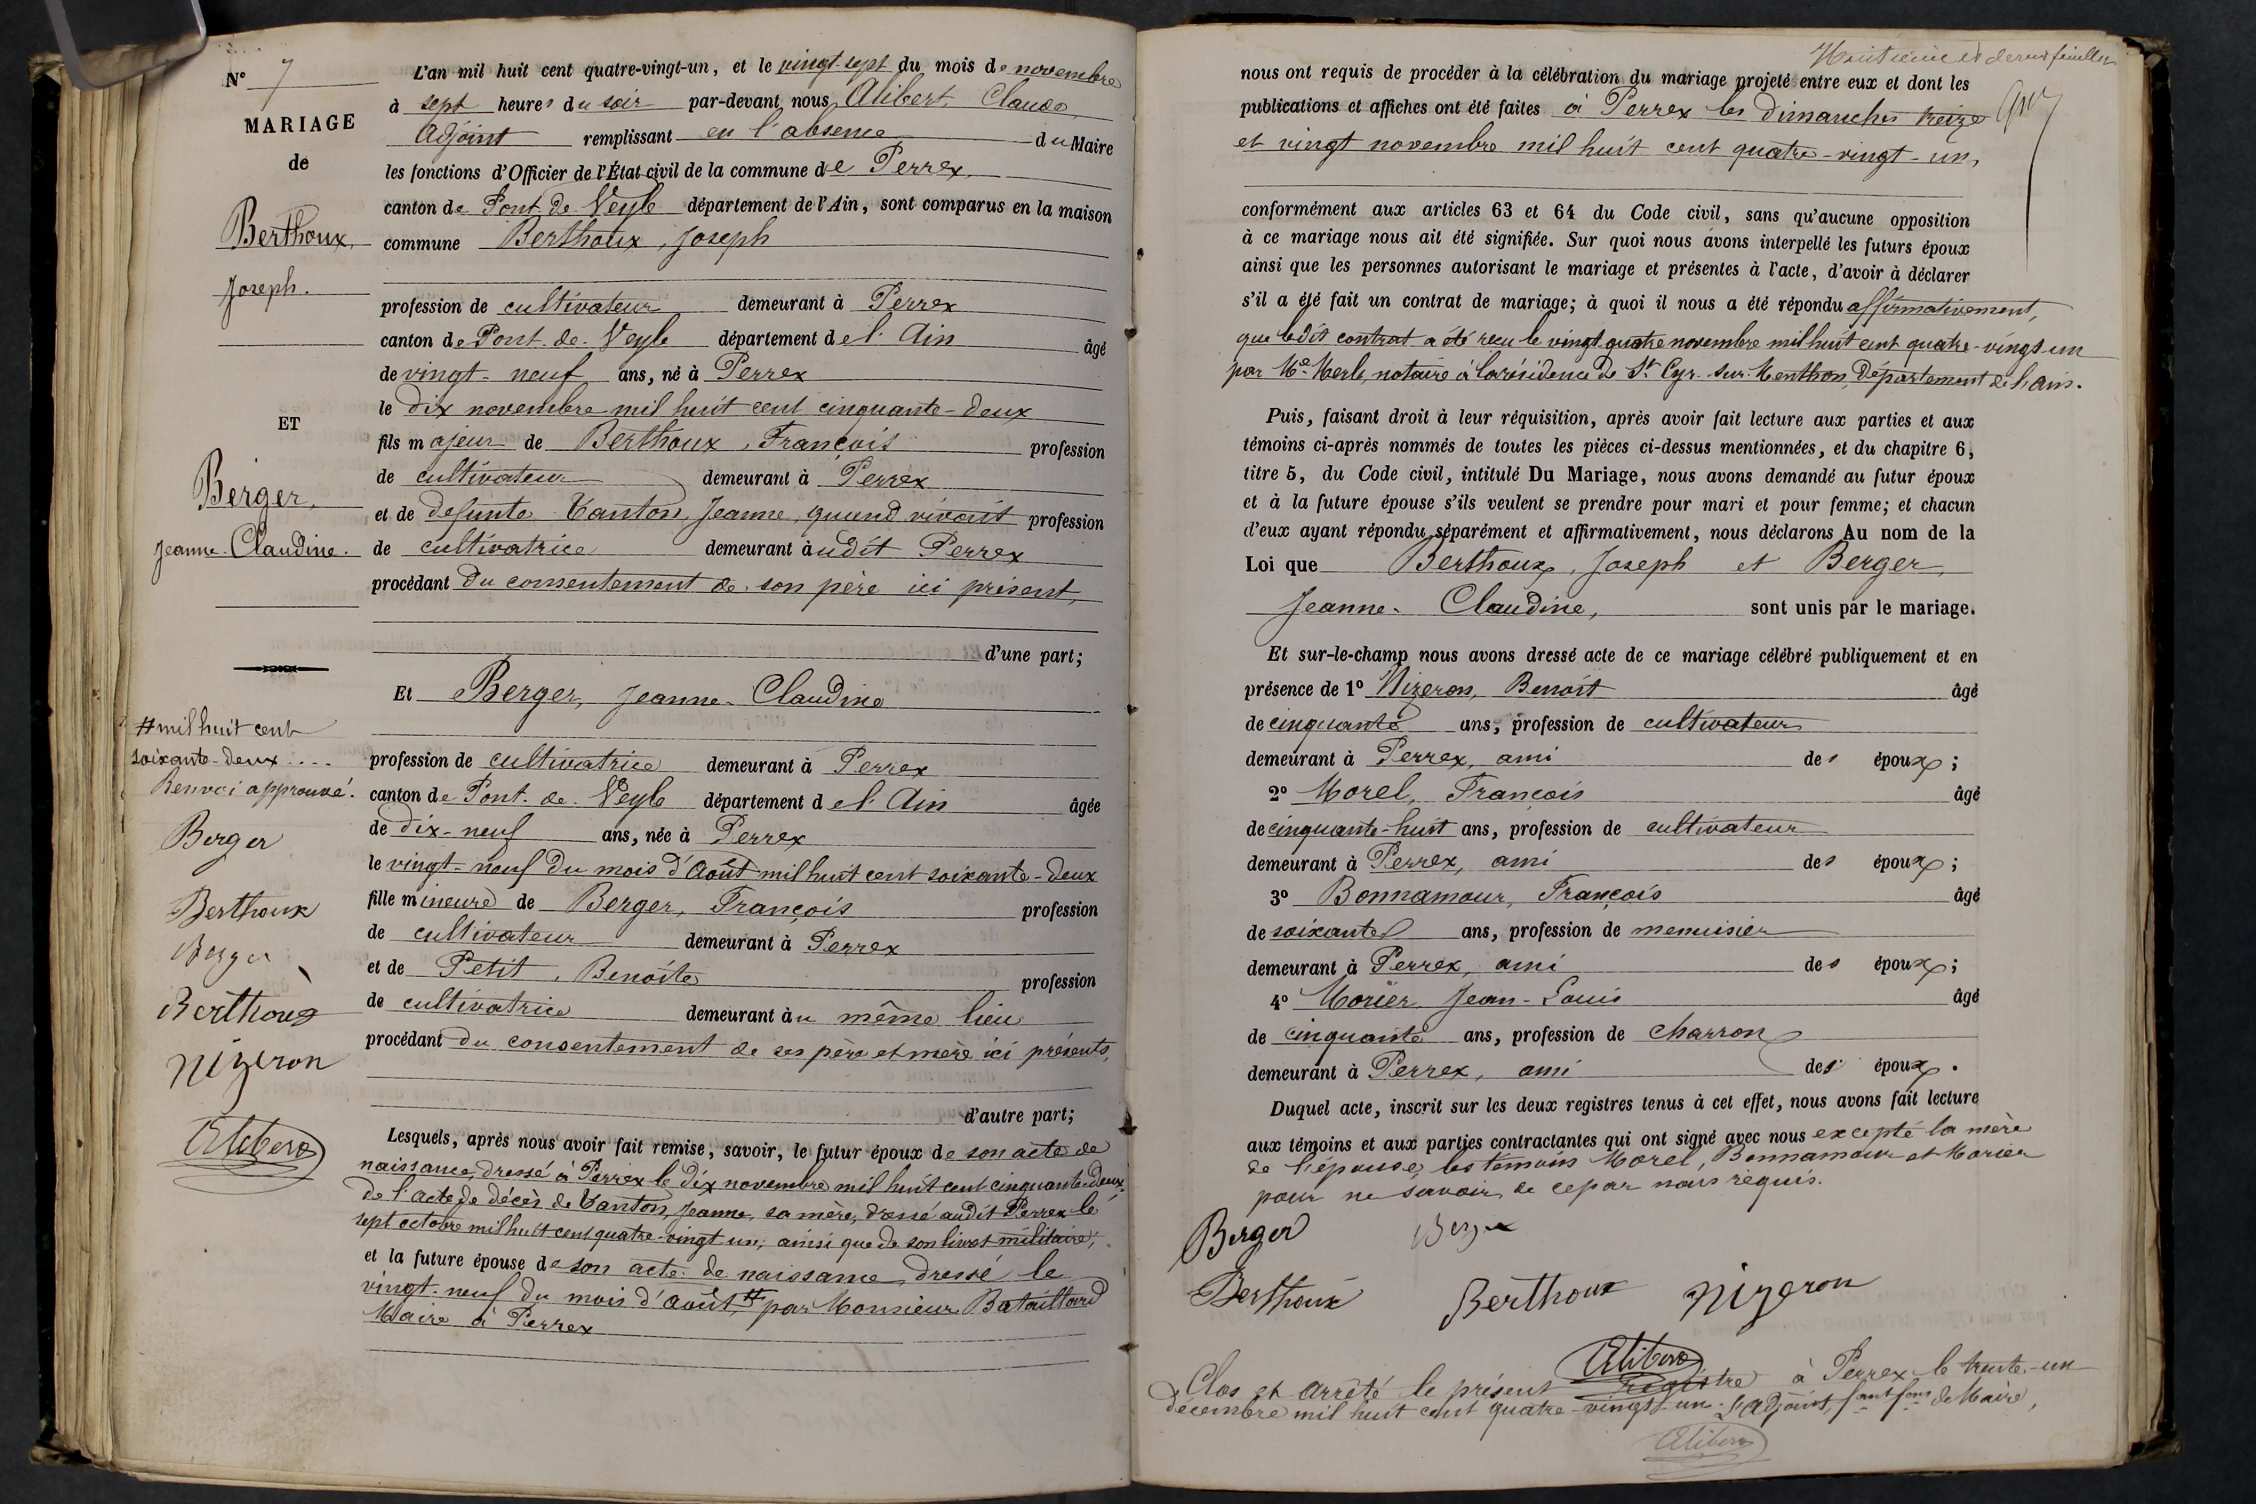 N° 7
MARIAGE
de
Berthoux,
Joseph.
ET
Berger,
Jeanne-Claudine.
# mil huit cent
soixante-deux....
Renvoi approuvé.
Berger
Berthoux
Berger
Berthoux
Nizeron
Alibert
L'an mil huit cent quatre-vingt-un, et le vingt sept du mois de novembre
à sept heures du soir par-devant nous Alibert, Claude,
Adjoint remplissant en l'absence du Maire
les fonctions d'Officier de l'État civil de la commune de Perrex,
canton de Pont de Veyle département de l'Ain, sont comparus en la maison
commune Berthoux, Joseph
profession de cultivateur demeurant à Perrex
canton de Pont-de-Veyle département de l'Ain âgé
de vingt-neuf ans, né à Perrex
le dix novembre mil huit cent cinquante-deux
fils majeur de Berthoux, François profession
de cultivateur demeurant à Perrex
et de defunte Tanton, Jeanne, quand vivait profession
de cultivatrice demeurant audit Perrex
procédant du consentement de son père ici présent,
d'une part;
Et Berger, Jeanne-Claudine
profession de cultivatrice demeurant à Perrex
canton de Pont-de-Veyle département de l'Ain âgée
de dix-neuf ans, née à Perrex
le vingt-neuf du mois d'Août mil huit cent soixante-deux
fille mineure de Berger, François profession
de cultivateur demeurant à Perrex
et de Petit, Benoîte profession
de cultivatrice demeurant au même lieu
procédant du consentement de ses père et mère ici présents,
d'autre part;
Lesquels, après nous avoir fait remise, savoir, le futur époux de son acte de
naissance, dressé à Perrex le dix novembre mil huit cent cinquante-deux,
de l'acte de décès de Tanton, Jeanne, sa mère, dressé audit Perrex le
sept octobre mil huit cent quatre-vingt un, ainsi que de son livret militaire,
et la future épouse de son acte de naissance dressé le
vingt-neuf du mois d'août # par Monsieur Bataillard
Maire à Perrex
Huitième et dernier feuillet
nous ont requis de procéder à la célébration du mariage projeté entre eux et dont les
publications et affiches ont été faites à Perrex les dimanches treize
et vingt novembre mil huit cent quatre-vingt-un,
conformément aux articles 63 et 64 du Code civil, sans qu'aucune opposition
à ce mariage nous ait été signifiée. Sur quoi nous avons interpellé les futurs époux
ainsi que les personnes autorisant le mariage et présentes à l'acte, d'avoir à déclarer
s'il a été fait un contrat de mariage; à quoi il nous a été répondu affirmativement,
que ledit contrat a été reçu le vingt-quatre novembre mil huit cent quatre-vingt-un
par Me Merle, notaire à la résidence de St Cyr-sur-Menthon, Département de l'Ain.
Puis, faisant droit à leur réquisition, après avoir fait lecture aux parties et aux
témoins ci-après nommés de toutes les pièces ci-dessus mentionnées, et du chapitre 6,
titre 5, du Code civil, intitulé Du Mariage, nous avons demandé au futur époux
et à la future épouse s'ils veulent se prendre pour mari et pour femme; et chacun
d'eux ayant répondu séparément et affirmativement, nous déclarons Au nom de la
Loi que Berthoux, Joseph et Berger,
Jeanne-Claudine, sont unis par le mariage.
Et sur-le-champ nous avons dressé acte de ce mariage célébré publiquement et en
présence de 1° Nizeron, Benoît âgé
de cinquante ans, profession de cultivateur
demeurant à Perrex, ami des époux;
2° Morel, François âgé
de cinquante-huit ans, profession de cultivateur
demeurant à Perrex, ami des époux;
3° Bonnamour, François âgé
de soixante ans, profession de menuisier
demeurant à Perrex, ami des époux;
4° Morier Jean-Louis âgé
de cinquante ans, profession de charron
demeurant à Perrex, ami des époux.
Duquel acte, inscrit sur les deux registres tenus à cet effet, nous avons fait lecture
aux témoins et aux parties contractantes qui ont signé avec nous excepté la mère
de l'épouse, les témoins Morel, Bonnamour et Morier
pour ne savoir de ce par nous requis.
Berger Berger
Berthoux Berthoux Nizeron
Alibert
Clos et arrêté le présent Registre à Perrex le trente-un
décembre mil huit cent quatre-vingt-un. L'adjoint, fant fons de Maire,
Alibert